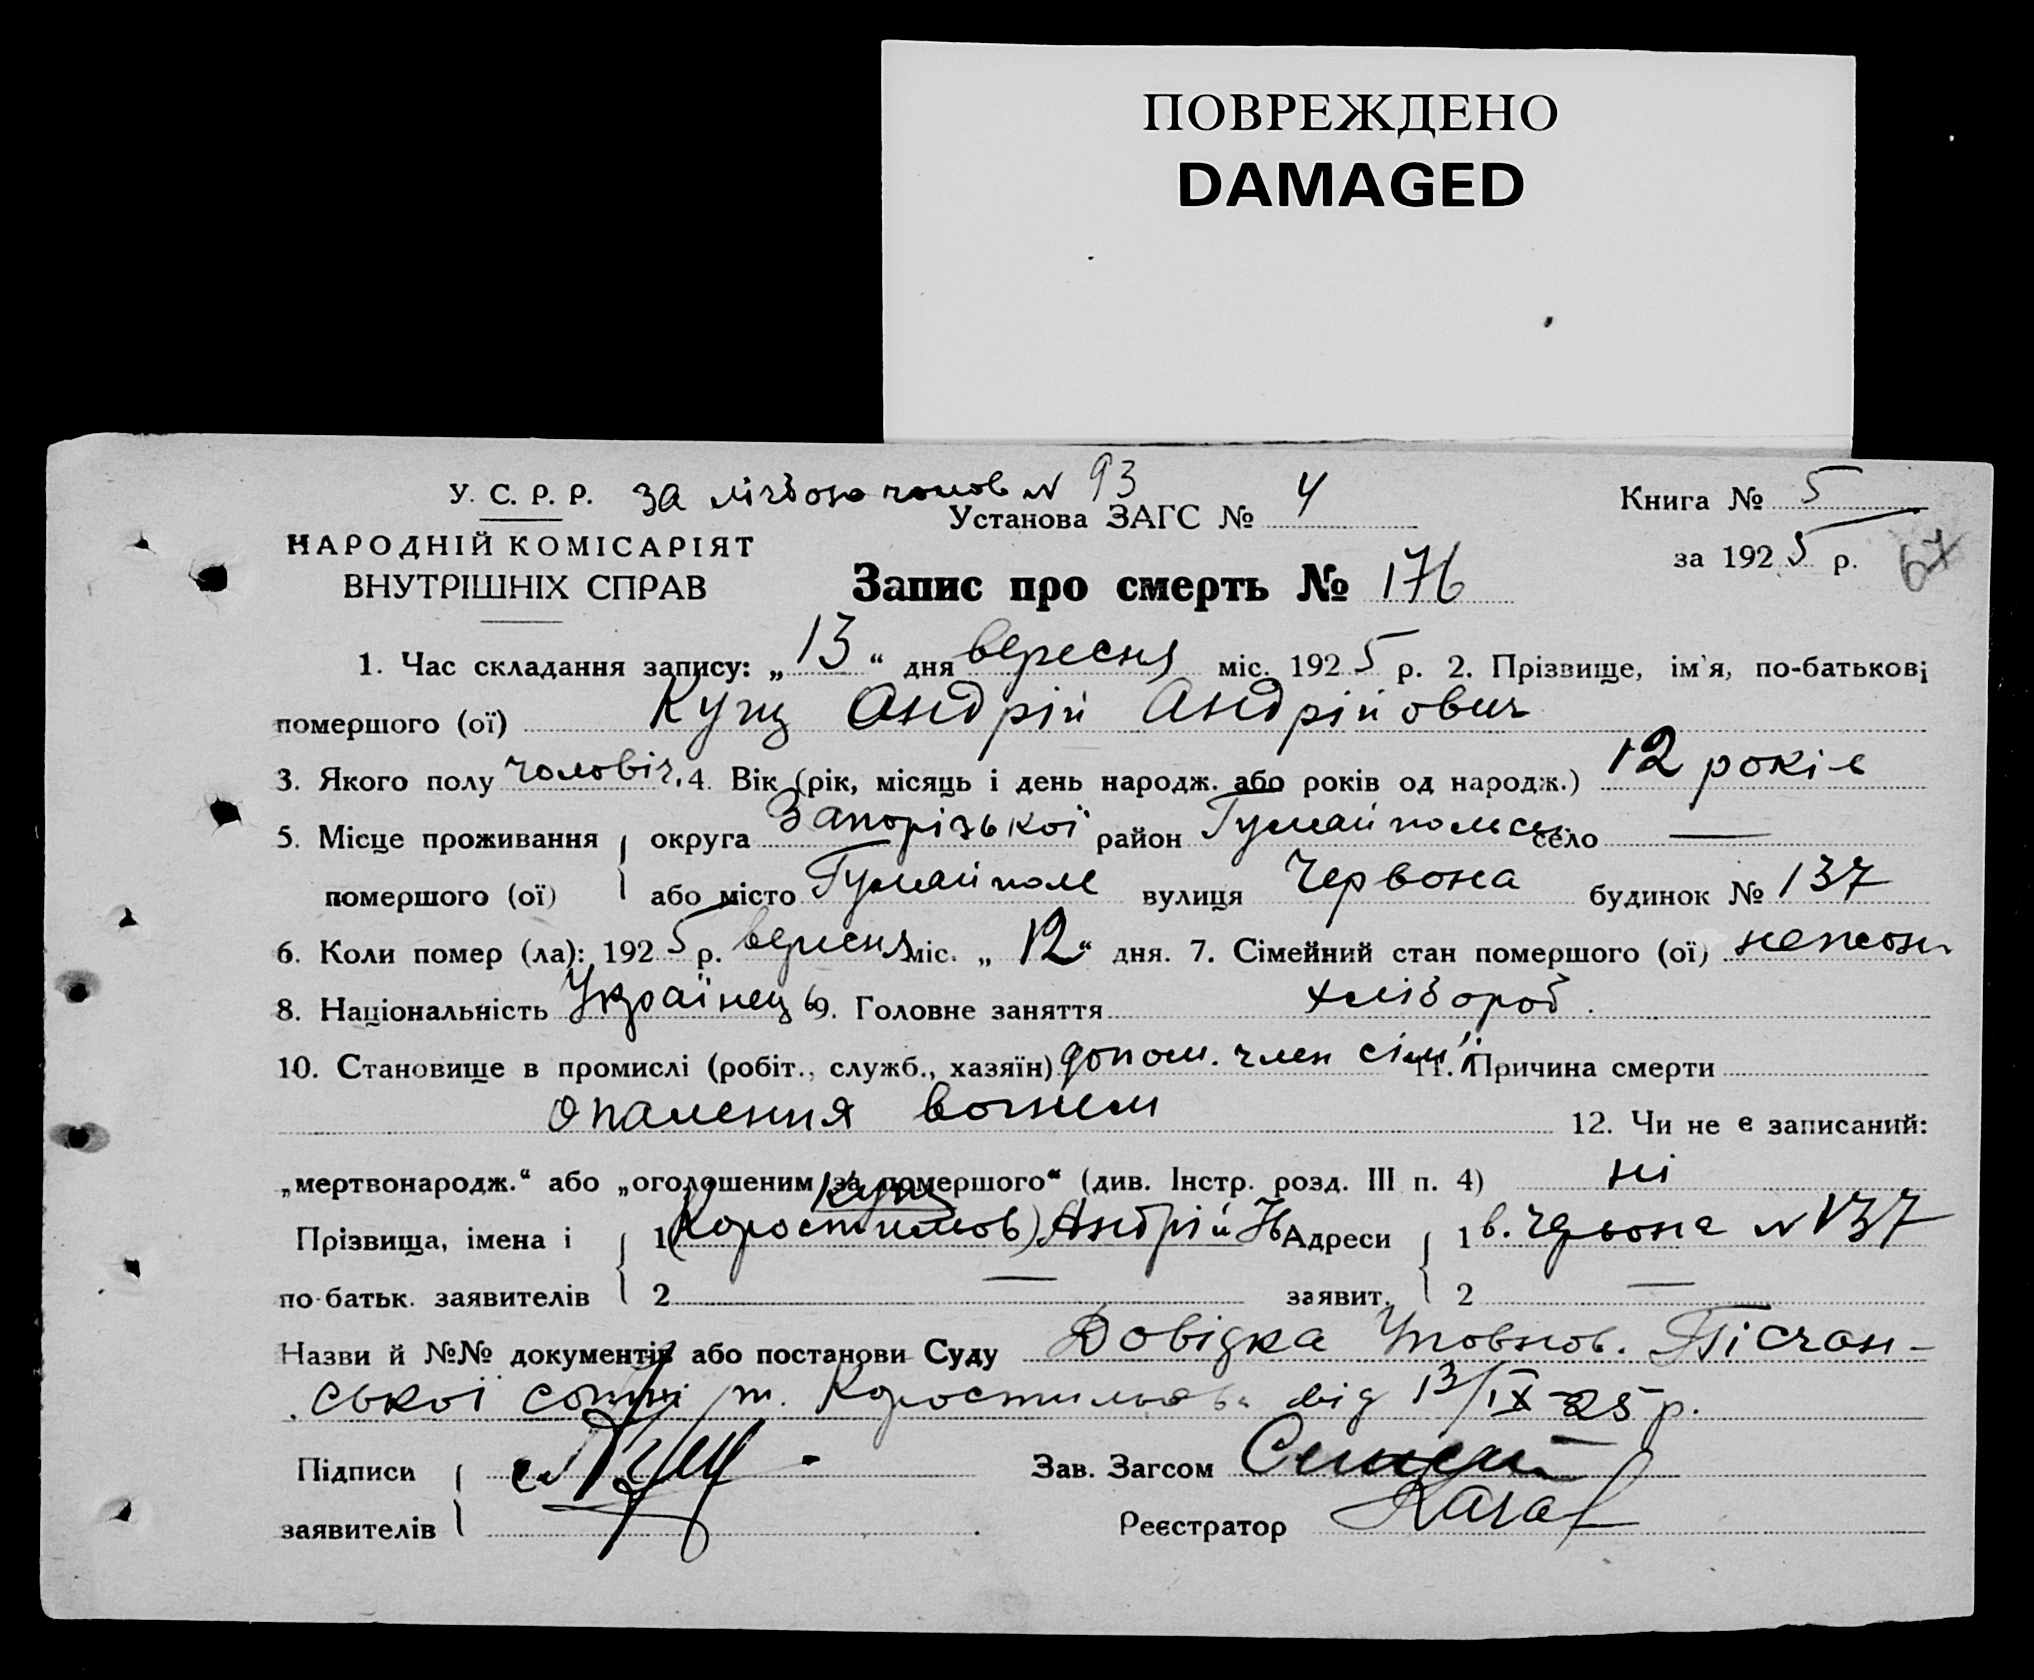 ПОВРЕЖДЕНО
DAMAGED
У. С. Р. Р. за лічбою чолов № 93
Установа ЗАГС № 4
Книга № 5
НАРОДНІЙ КОМІСАРІЯТ
ВНУТРІШНІХ СПРАВ
за 1925 р. 67
Запис про смерть № 176
1. Час складання запису: „13“ дня вересня міс. 1925 р. 2. Прізвище, ім'я, по-батькові
помершого (ої) Кущ Андрій Андрійович
3. Якого полу чоловіч. 4. Вік (рік, місяць і день народж. або років од народж.) 12 років
5. Місце проживання округа Запорізької район Гуляйпольськ село —
помершого (ої) або місто Гуляйполе вулиця Червона будинок № 137
6. Коли помер (ла): 1925 р. вересня міс. „12“ дня. 7. Сімейний стан помершого (ої) нежон.
8. Національність Українець 9. Головне заняття хлібороб.
10. Становище в промислі (робіт., служб., хазяїн) допом. член сім'ї 11. Причина смерти
опалення вогнем 12. Чи не є записаний:
„мертвонародж.“ або „оголошеним за помершого“ (див. Інстр. розд. III п. 4) ні
Кущ
Прізвища, імена і 1 (Коростильов) Андрій Ів Адреси 1 в. Червона № 137
по-батьк. заявителів 2 — заявит. 2 —
Назви й №№ документів або постанови Суду Довідка Уповнов. Пісчан-
ської сотні т. Коростильова від 13/IX-25 р.
Підписи Кущ Зав. Загсом
заявителів Реєстратор